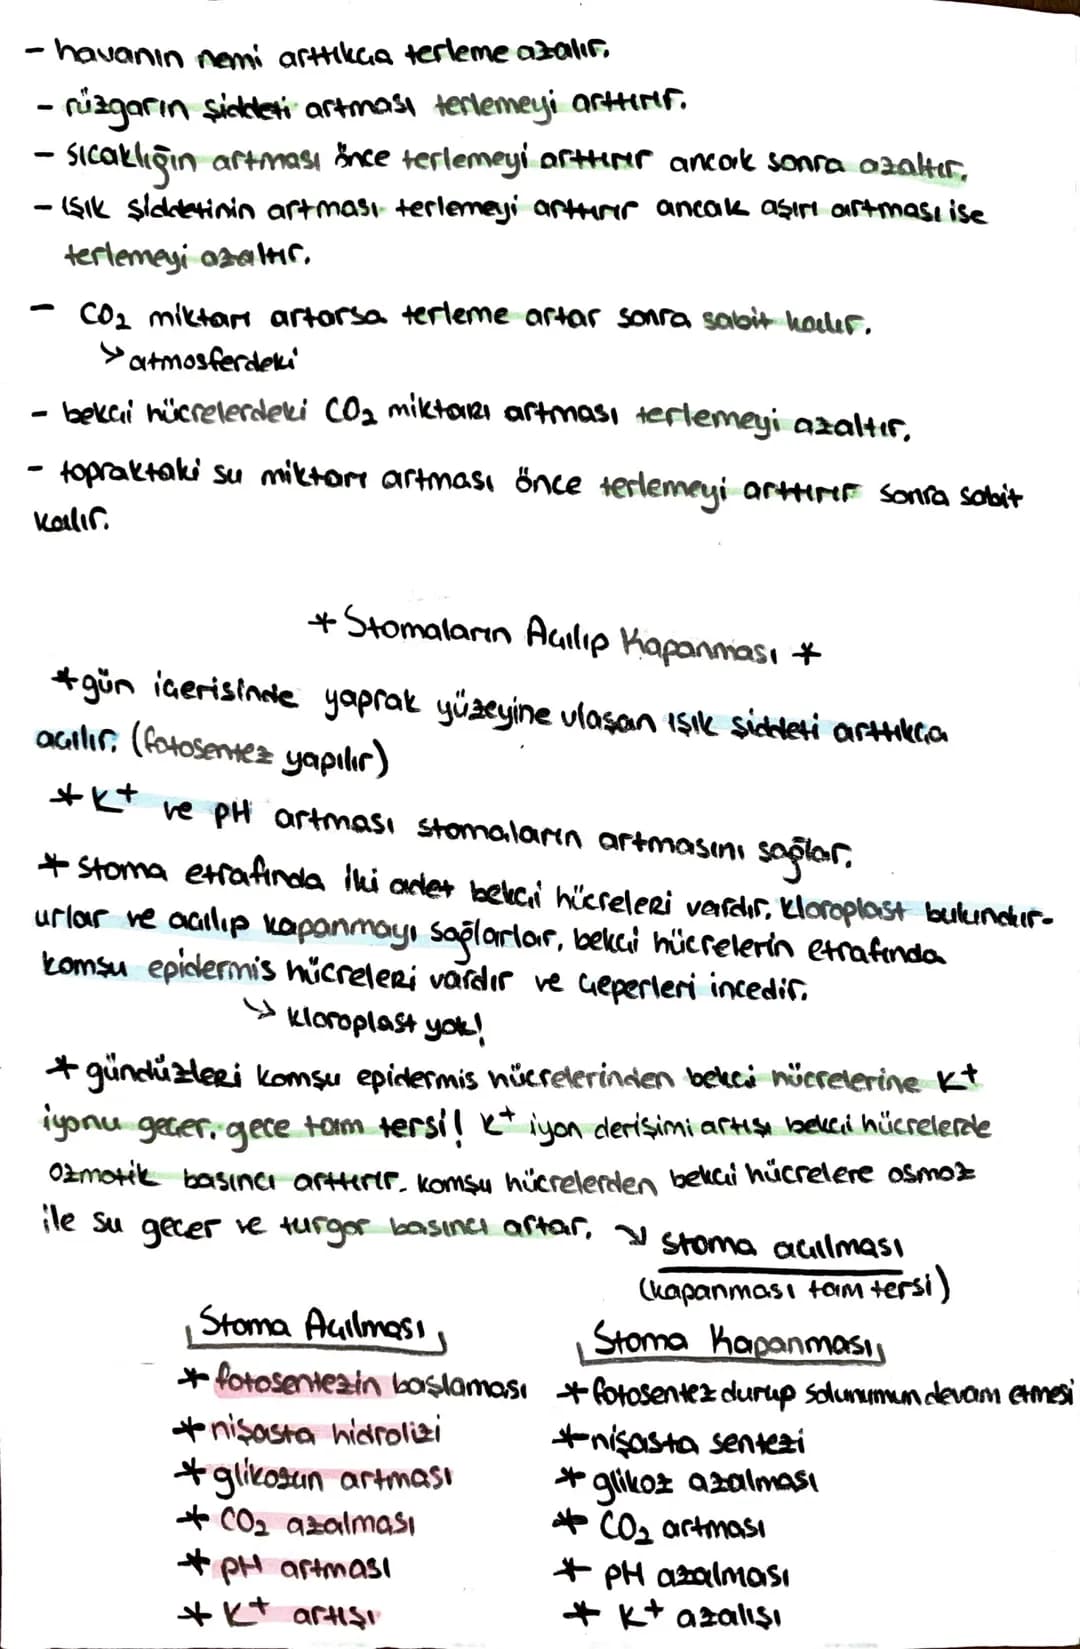 - havanın nemi arttıkça terleme azalır.
- rüzgarın şiddeti artması terlemeyi arttırır.
- sıcaklığın artması önce terlemeyi arttırır ancak sonra azaltır.
- ışık şiddetinin artması terlemeyi arttırır ancak aşırı artması ise
terlemeyi azaltır.
- CO₂ miktarı artarsa terleme artar sonra sabit kalır.
↳ atmosferdeki
- bekçi hücrelerdeki CO₂ miktarı artması terlemeyi azaltır.
- topraktaki su miktarı artması önce terlemeyi arttırır sonra sabit
kalır.
* Stomaların Açılıp Kapanması *
* gün içerisinde yaprak yüzeyine ulaşan ışık şiddeti arttıkça
açılır. (fotosentez yapılır)
* K⁺ ve pH artması stomaların artmasını sağlar.
* Stoma etrafında iki adet bekçi hücreleri vardır. kloroplast bulundur-
urlar ve açılıp kapanmayı sağlarlar, bekçi hücrelerin etrafında
komşu epidermis hücreleri vardır ve çeperleri incedir.
↳ kloroplast yok!
* gündüzleri komşu epidermis hücrelerinden bekçi hücrelerine K⁺
iyonu geçer, gece tam tersi! K⁺ iyon derişimi artışı bekçi hücrelerde
ozmotik basıncı arttırır. komşu hücrelerden bekçi hücrelere osmoz
ile su geçer ve turgor basıncı artar. ↘ stoma açılması
(kapanması tam tersi)
Stoma Açılması
* fotosentezin başlaması
* nişasta hidrolizi
* glikozun artması
* CO₂ azalması
* pH artması
* K⁺ artışı
Stoma Kapanması
* fotosentez durup solunumun devam etmesi
* nişasta sentezi
* glikoz azalması
* CO₂ artması
* pH azalması
* K⁺ azalışı